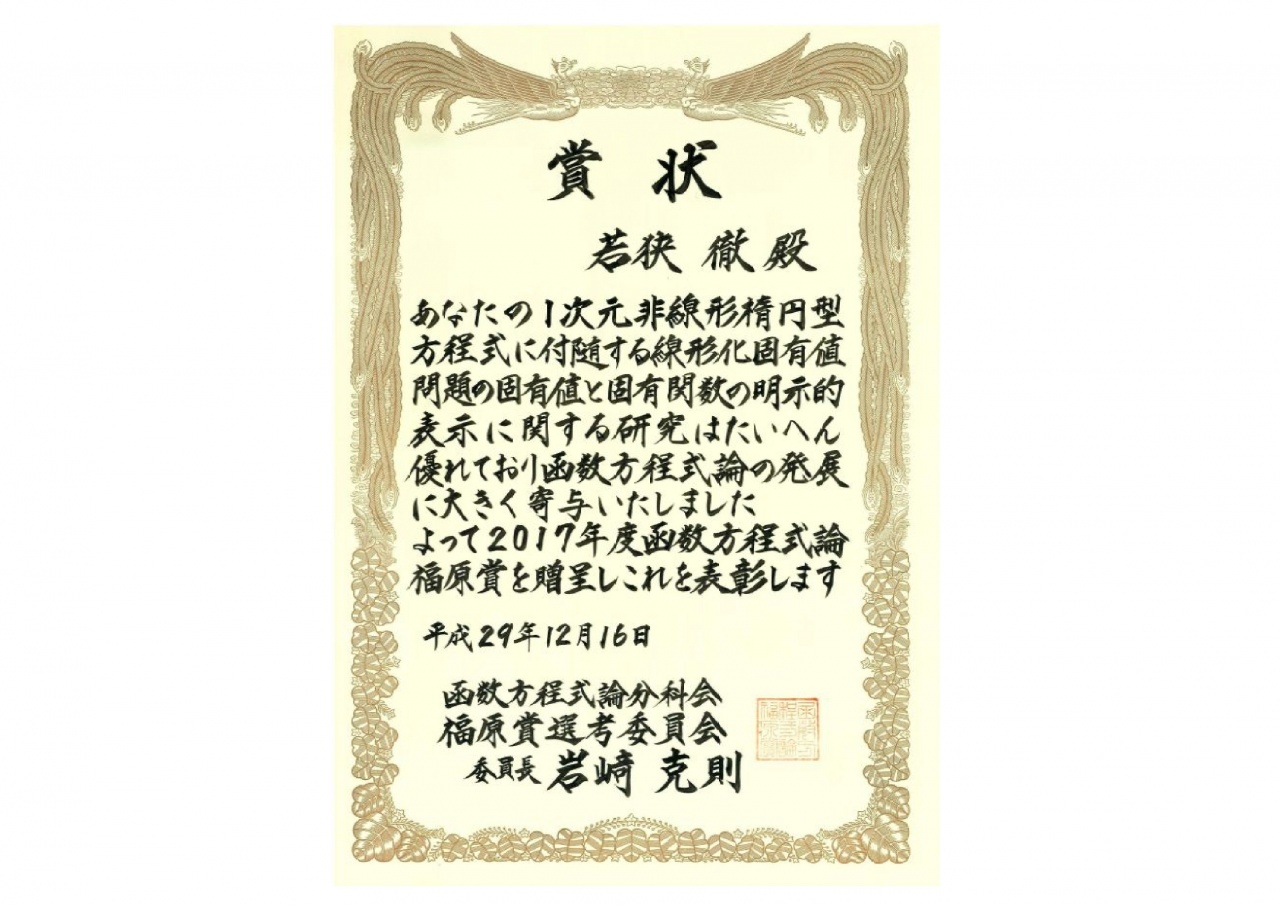 賞状
若狭 徹 殿
あなたの1次元非線形楕円型
方程式に付随する線形化固有値
問題の固有値と固有関数の明示的
表示に関する研究はたいへん
優れており函数方程式論の発展
に大きく寄与いたしました
よって2017年度函数方程式論
福原賞を贈呈しこれを表彰します
平成29年12月16日
函数方程式論分科会
福原賞選考委員会
委員長 岩﨑 克則